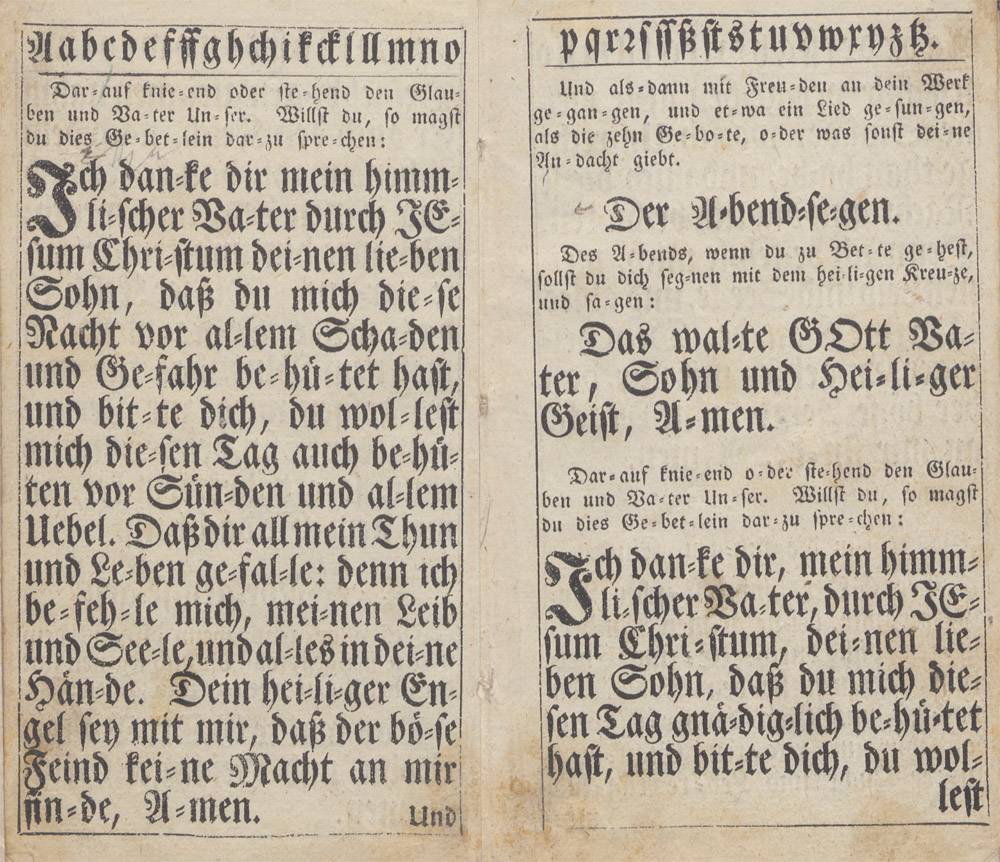 Aabcdefffghchikcklllmno
Dar-auf knie-end oder ste-hend den Glau-
ben und Va-ter Un-ser. Willst du, so magst
du dies Ge-bet-lein dar-zu spre-chen:
Ich dan-ke dir mein himm-
li-scher Va-ter durch JE-
sum Chri-stum dei-nen lie-ben
Sohn, daß du mich die-se
Nacht vor al-lem Scha-den
und Ge-fahr be-hü-tet hast,
und bit-te dich, du wol-lest
mich die-sen Tag auch be-hü-
ten vor Sün-den und al-lem
Uebel. Daß dir all mein Thun
und Le-ben ge-fal-le: denn ich
be-feh-le mich, mei-nen Leib
und See-le, und al-les in dei-ne
Hän-de. Dein hei-li-ger En-
gel sey mit mir, daß der bö-se
Feind kei-ne Macht an mir
fin-de, A-men.
Und
pqrꝛſſſßſtstuvwxyztz.
Und als-dann mit Freu-den an dein Werk
ge-gan-gen, und et-wa ein Lied ge-sun-gen,
als die zehn Ge-bo-te, o-der was sonst dei-ne
An-dacht giebt.
Der A-bend-se-gen.
Des A-bends, wenn du zu Bet-te ge-hest,
sollst du dich seg-nen mit dem hei-li-gen Kreu-ze,
und sa-gen:
Das wal-te GOtt Va-
ter, Sohn und Hei-li-ger
Geist, A-men.
Dar-auf knie-end o-der ste-hend den Glau-
ben und Va-ter Un-ser. Willst du, so magst
du dies Ge-bet-lein dar-zu spre-chen:
Ich dan-ke dir, mein himm-
li-scher Va-ter, durch JE-
sum Chri-stum, dei-nen lie-
ben Sohn, daß du mich die-
sen Tag gnä-dig-lich be-hü-tet
hast, und bit-te dich, du wol-
lest